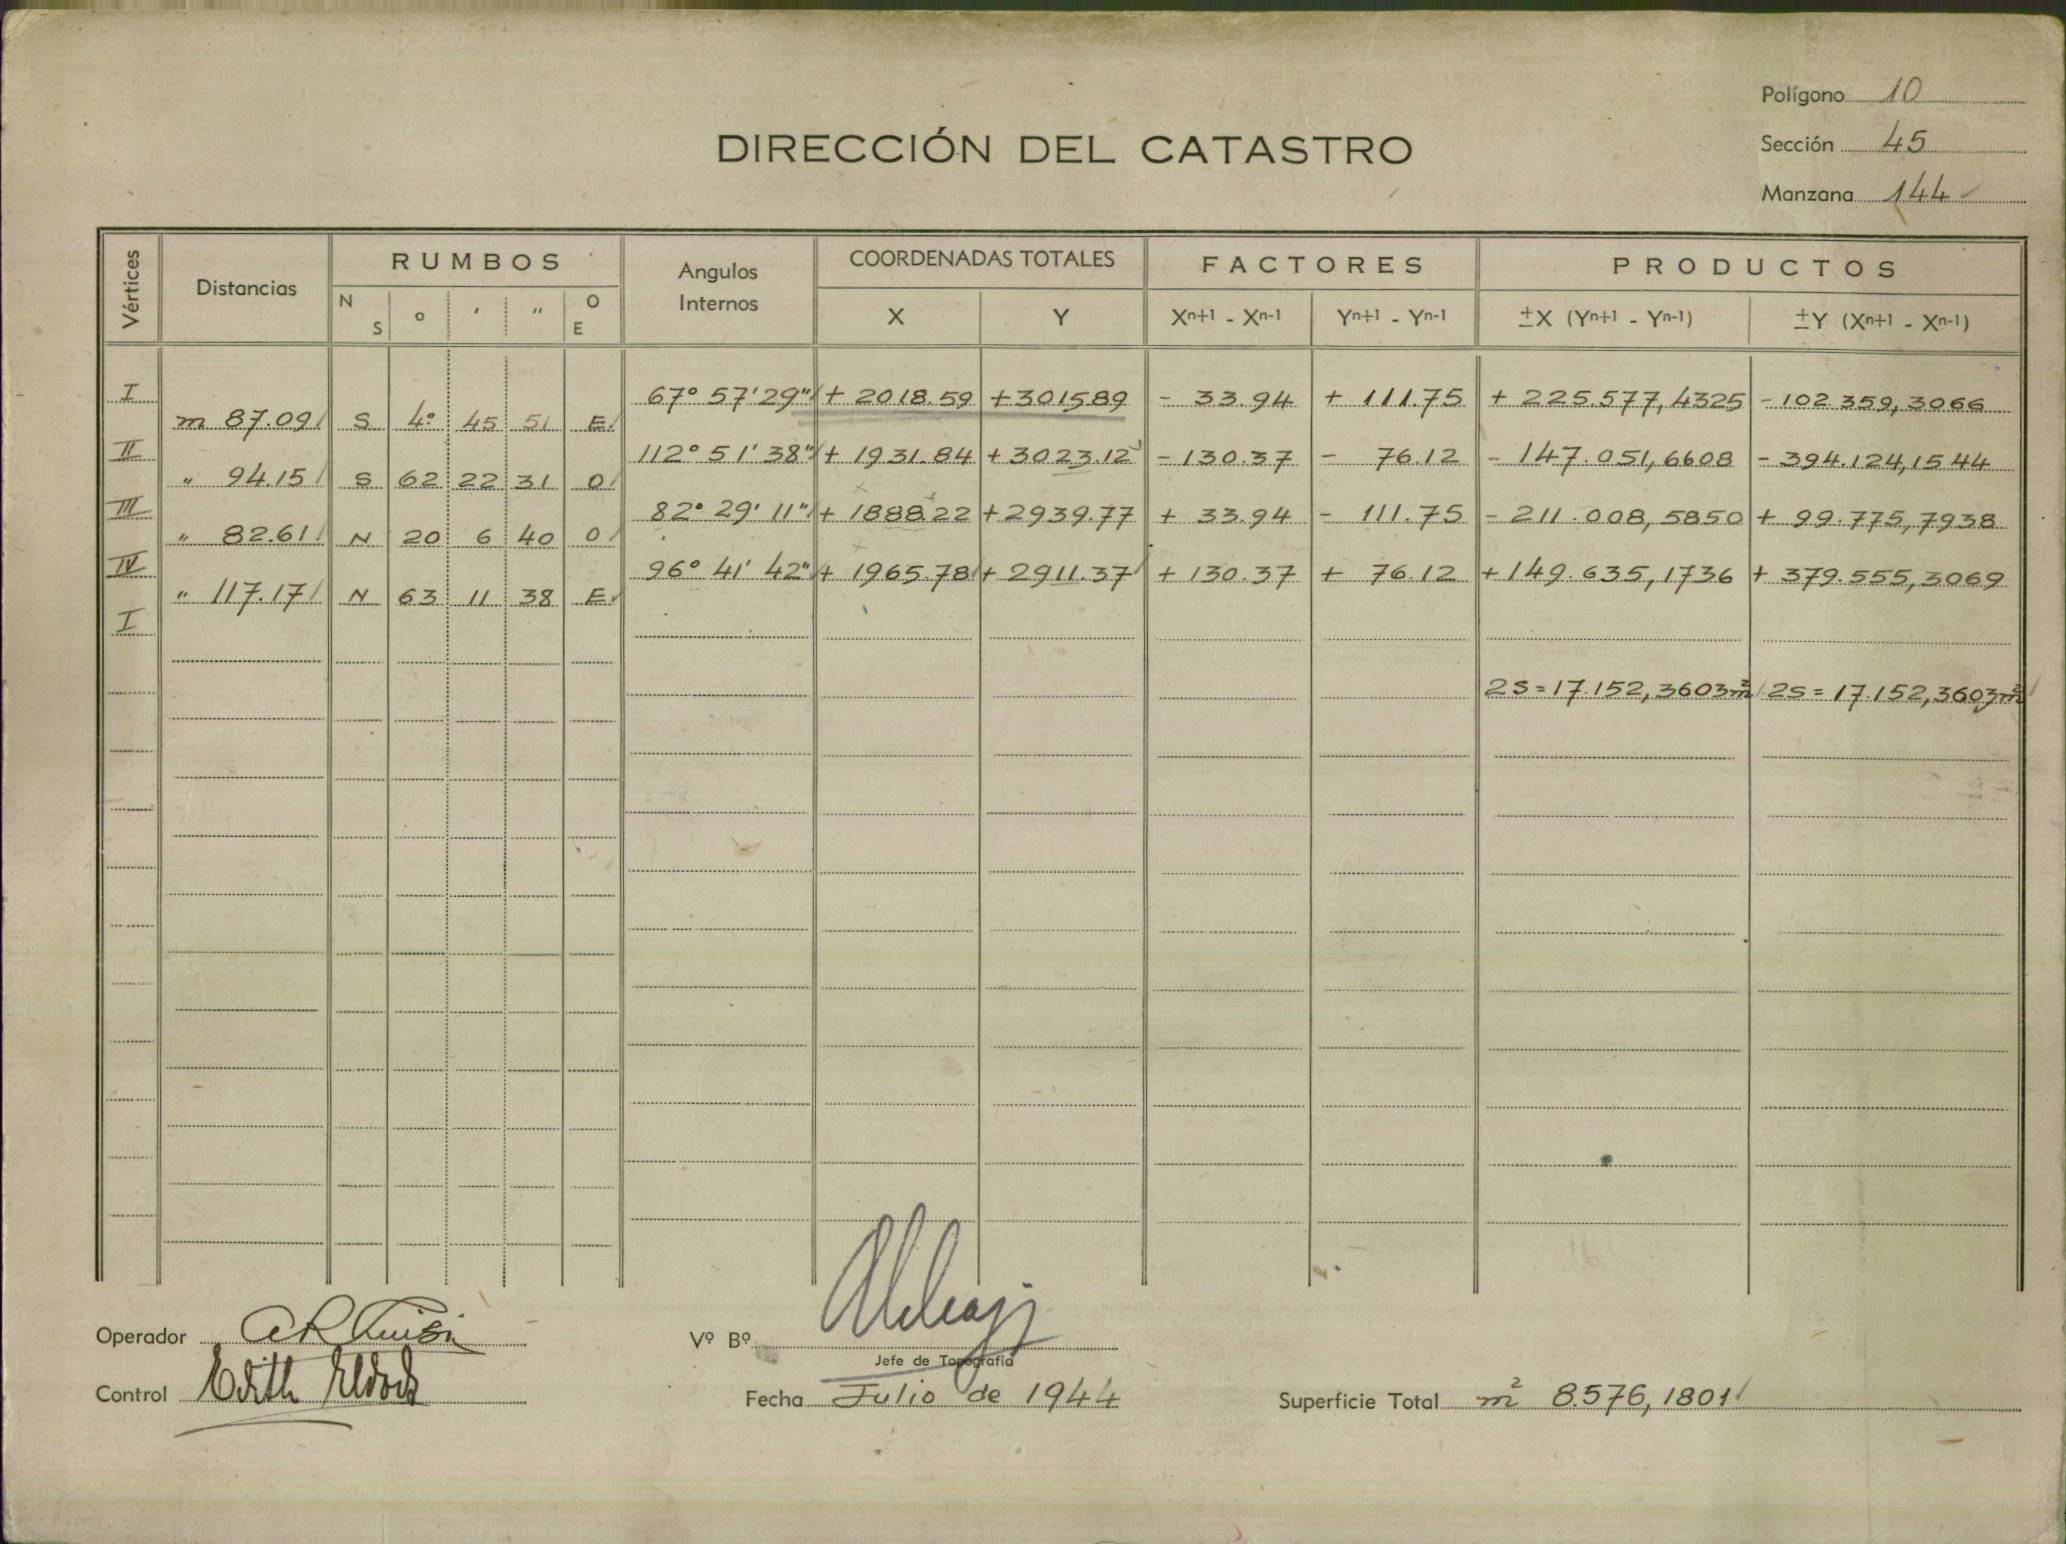 Polígono 10
DIRECCIÓN DEL CATASTRO
Sección 45
Manzana 144
Vértices Distancias RUMBOS Angulos Internos COORDENADAS TOTALES FACTORES PRODUCTOS
N S ° ' " O E X Y Xn+1 - Xn-1 Yn+1 - Yn-1 ±X (Yn+1 - Yn-1) ±Y (Xn+1 - Xn-1)
I 67° 57' 29" + 2018.59 + 3015.89 - 33.94 + 111.75 + 225.577,4325 - 102.359,3066
m 87.09 S 4° 45 51 E
II 112° 51' 38" + 1931.84 + 3023.12 - 130.37 - 76.12 - 147.051,6608 - 394.124,1544
" 94.15 S 62 22 31 O
III 82° 29' 11" + 1888.22 + 2939.77 + 33.94 - 111.75 - 211.008,5850 + 99.775,7938
" 82.61 N 20 6 40 O
IV 96° 41' 42" + 1965.78 + 2911.37 + 130.37 + 76.12 + 149.635,1736 + 379.555,3069
" 117.17 N 63 11 38 E
I
2S = 17.152,3603 m² 2S = 17.152,3603 m²
Operador
Vº Bº
Jefe de Topografía
Control Edith
Fecha Julio de 1944
Superficie Total m² 8.576,1801